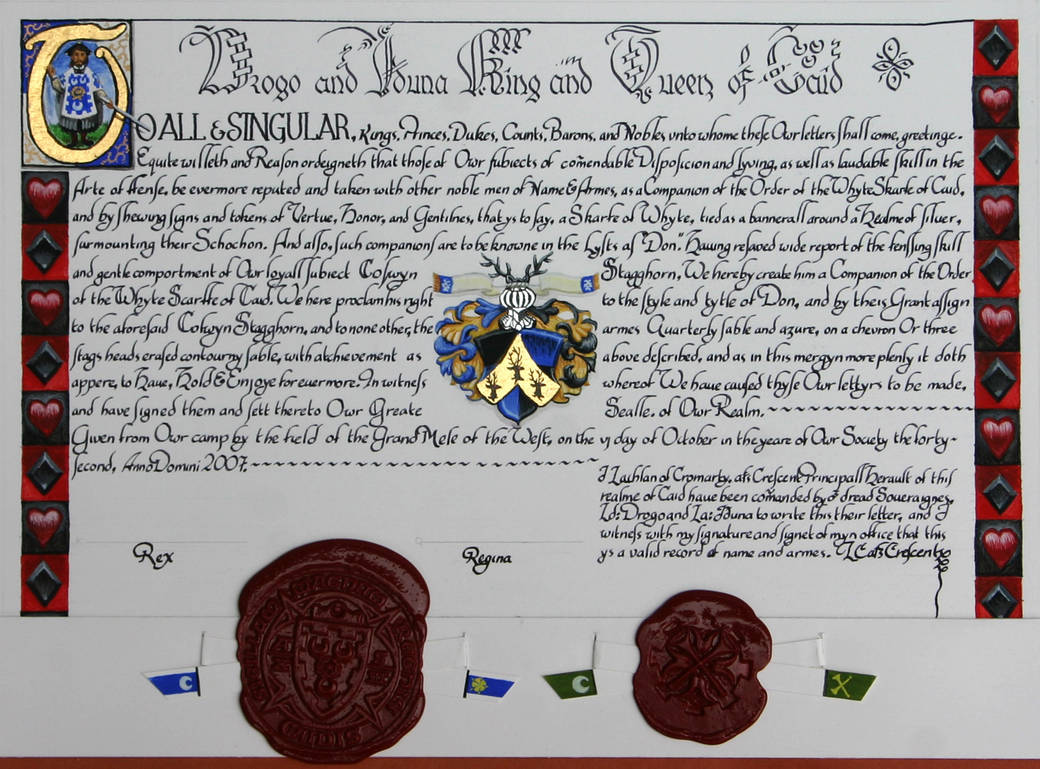 Drogo and Iduna King and Queen of Caid
TO ALL & SINGULAR, Kings, Princes, Dukes, Counts, Barons, and Nobles vnto whome these Owr letters shall come, greetinge.
Equite willeth and Reason ordeigneth that those of Owr subiects of comendable Disposicion and lyving, as well as laudable skill in the
Arte of ffense, be evermore reputed and taken with other noble men of Name & Armes, as a Companion of the Order of the Whyte Skarfe of Caid,
and by shewing signs and tokens of Vertue, Honor, and Gentilnes, that ys to say, a Skarfe of Whyte, tied as a bannerall around a Healme of siluer,
surmounting their Schochon. And also, such companions are to be knowne in the Lysts as "Don." Hauing resaved wide report of the fensing skill
and gentle comportment of Owr loyall subiect Colwyn Stagghorn, We hereby create him a Companion of the Order
of the Whyte Scarffe of Caid. We here proclam his right to the style and tytle of Don, and by theis Grant assign
to the aforesaid Colwyn Stagghorn, and to none other, the armes Quarterly sable and azure, on a chevron Or three
stags heads erased contourny sable, with atchievement as above described, and as in this mergyn more plenly it doth
appere, to Haue, Hold & Enjoye for euermore. In witness whereof We haue caused thyse Owr lettyrs to be made,
and have signed them and sett thereto Owr Greate Sealle. of Owr Realm.
Given from Owr camp by the field of the Grand Mele of the West, on the vj day of October in the yeare of Owr Society the forty-
second, Anno Domini 2007.
I Lachlan of Cromarty, als Crescent Principall Herault of this
realme of Caid haue been comanded by dread Soueraignes,
Ld: Drogo and La: Iduna to write this their letter, and I
witness with my signature and signet of myn office that this
ys a valid record of name and armes. LC als Crescent
Rex
Regina